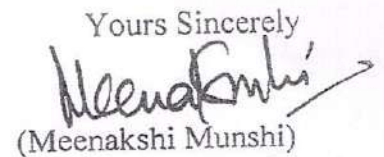 Yours Sincerely
Meenakshi
(Meenakshi Munshi)